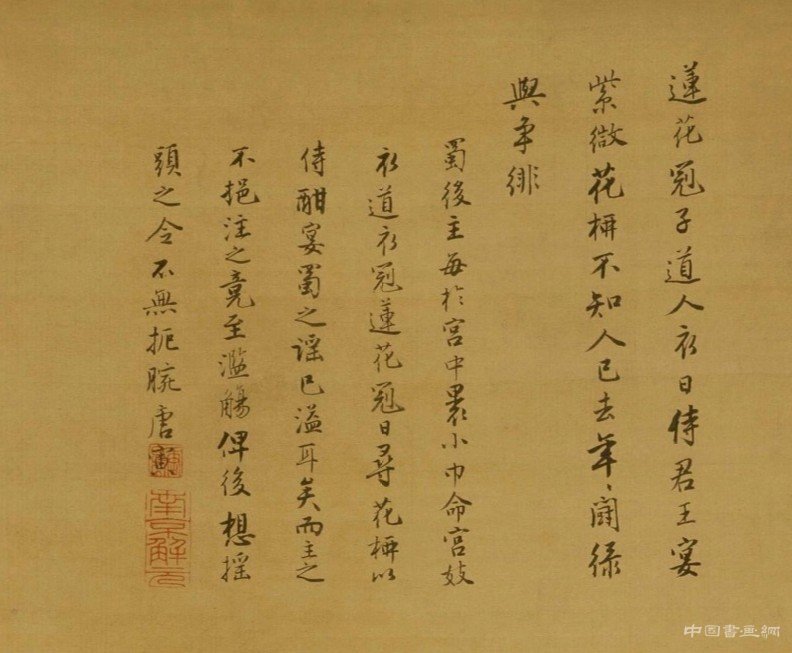 蓮花冠子道人衣日侍君王宴
紫微花柳不知人已去年〻鬪綠
與爭緋
蜀後主每於宮中裹小巾命宮妓
衣道衣冠蓮花冠日尋花柳以
侍酣宴蜀之謠已溢耳矣而主之
不挹注之竟至濫觴俾後想搖
頭之令不無扼腕唐寅
南京解元
中国書画網